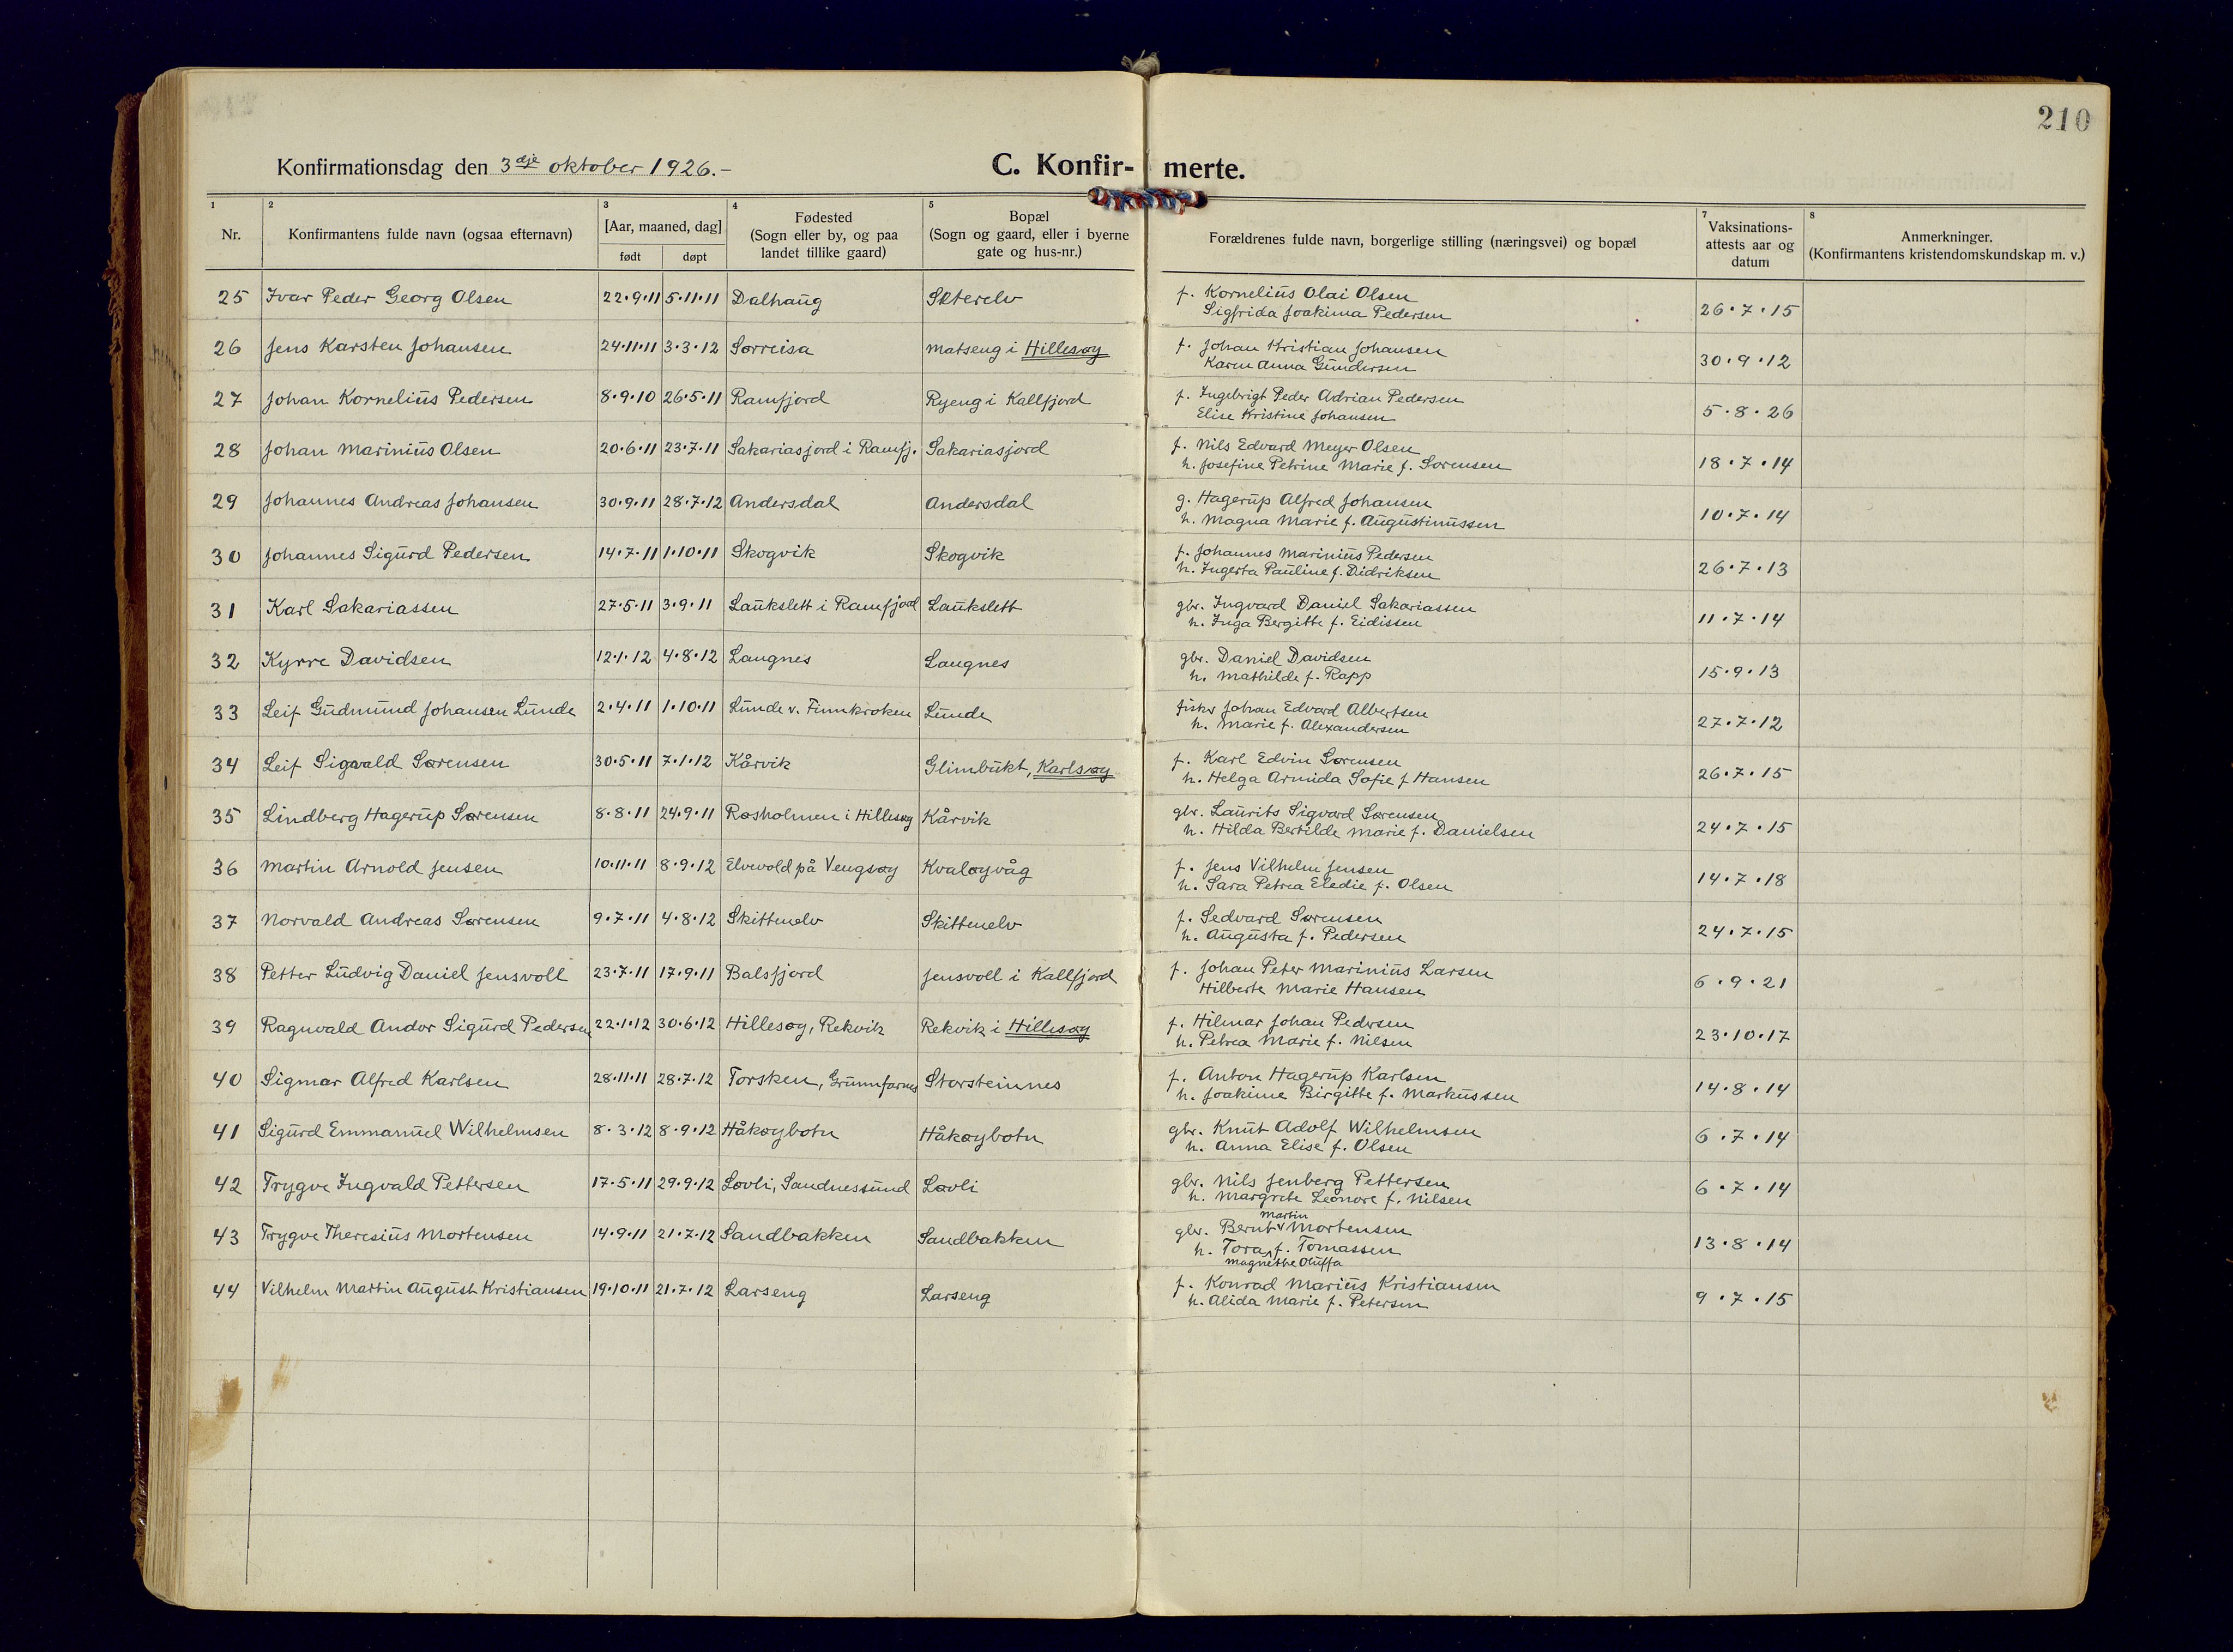 210
Konfirmationsdag den 3dje oktober 1926.-
C. Konfir- merte.
1 2 3 4 5 7 8
Nr. Konfirmantens fulde navn (ogsaa efternavn) [Aar, maaned, dag] født døpt Fødested (Sogn eller by, og paa landet tillike gaard) Bopæl (Sogn og gaard, eller i byerne gate og hus-nr.) Forældrenes fulde navn, borgerlige stilling (næringsvei) og bopæl Vaksinations-attests aar og datum Anmerkninger. (Konfirmantens kristendomskundskap m. v.)
25 Ivar Peder Georg Olsen 22.9.11 5.11.11 Dalhaug Sæterelv f. Kornelius Olai Olsen
Sigfrida Joakima Pedersen 26.7.15
26 Jens Karsten Johansen 24.11.11 3.3.12 Sørreisa Matseng i Hillesøy f. Johan Kristian Johansen
Karen Anna Gundersen 30.9.12
27 Johan Kornelius Pedersen 8.9.10 26.5.11 Ramfjord Ryeng i Kallfjord f. Ingebrigt Peder Adrian Pedersen
Elise Kristine Johansen 5.8.26
28 Johan Marinius Olsen 20.6.11 23.7.11 Sakariasjord i Ramfj. Sakariasjord f. Nils Edvard Meyer Olsen
h. Josefine Petrine Marie f. Sørensen 18.7.14
29 Johannes Andreas Johansen 30.9.11 28.7.12 Andersdal Andersdal g. Hagerup Alfred Johansen
h. Magna Marie f. Augustinussen 10.7.14
30 Johannes Sigurd Pedersen 14.7.11 1.10.11 Skogvik Skogvik f. Johannes Marinius Pedersen
h. Ingerta Pauline f. Didriksen 26.7.13
31 Karl Sakariassen 27.5.11 3.9.11 Laukslett i Ramfjord Laukslett gbr. Ingvard Daniel Sakariassen
h. Inga Bergitte f. Eidissen 11.7.14
32 Kyrre Davidsen 12.1.12 4.8.12 Langnes Langnes gbr. Daniel Davidsen
h. Mathilde f. Rapp 15.9.13
33 Leif Gudmund Johansen Lunde 2.4.11 1.10.11 Lunde v. Finnkroken Lunde fisker Johan Edvard Albertsen
h. Marie f. Alexandersen 27.7.12
34 Leif Sigvald Sørensen 30.5.11 7.1.12 Kårvik Glimbukt, Karlsøy f. Karl Edvin Sørensen
h. Helga Armida Sofie f Hansen 26.7.15
35 Lindberg Hagerup Sørensen 8.8.11 24.9.11 Røsholmen i Hillesøy Kårvik gbr. Laurits Sigvard Sørensen
h. Hilda Bertilde Marie f. Danielsen 24.7.15
36 Martin Arnold Jensen 10.11.11 8.9.12 Elvevold på Vengsøy Kvaløyvåg f. Jens Vilhelm Jensen
h. Sara Petrea Eledie f. Olsen 14.7.18
37 Norvald Andreas Sørensen 9.7.11 4.8.12 Skittenelv Skittenelv f. Sedvard Sørensen
h. Augusta f. Pedersen 24.7.15
38 Petter Ludvig Daniel Jensvoll 23.7.11 17.9.11 Balsfjord Jensvoll i Kallfjord f. Johan Peter Marinius Larsen
Hilberte Marie Hansen 6.9.21
39 Ragnvald Andor Sigurd Pedersen 22.1.12 30.6.12 Hillesøy, Rekvik Rekvik i Hillesøy f. Hilmar Johan Pedersen
h. Petrea Marie f. Nilsen 23.10.17
40 Sigmar Alfred Karlsen 28.11.11 28.7.12 Torsken, Grunnfarnes Storsteinnes f. Anton Hagerup Karlsen
h. Joakime Birgitte f. Markussen 14.8.14
41 Sigurd Emmanuel Wilhelmsen 8.3.12 8.9.12 Håkøybotn Håkøybotn gbr. Knut Adolf Wilhelmsen
h. Anna Elise f. Olsen 6.7.14
42 Trygve Ingvald Pettersen 17.5.11 29.9.12 Løvli, Sandnessund Løvli gbr. Nils Jenberg Pettersen
h. Margrete Leonore f. Nilsen 6.7.14
43 Trygve Theresius Mortensen 14.9.11 21.7.12 Sandbakken Sandbakken gbr. Bernt Martin Mortensen
h. Tora Magnethe Oluffa f. Tomassen 13.8.14
44 Vilhelm Martin August Kristiansen 19.10.11 21.7.12 Larseng Larseng f. Konrad Marius Kristiansen
h. Alida Marie f. Petersen 9.7.15